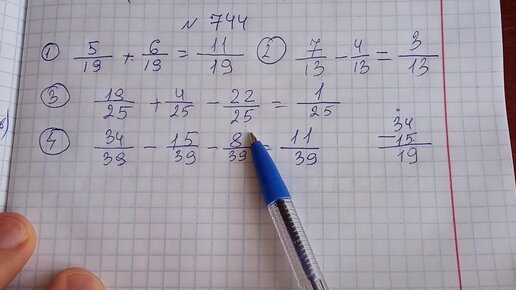 № 744
① 5/19 + 6/19 = 11/19 ② 7/13 - 4/13 = 3/13
③ 19/25 + 4/25 - 22/25 = 1/25
④ 34/39 - 15/39 - 8/39 = 11/39
34
- 15
19